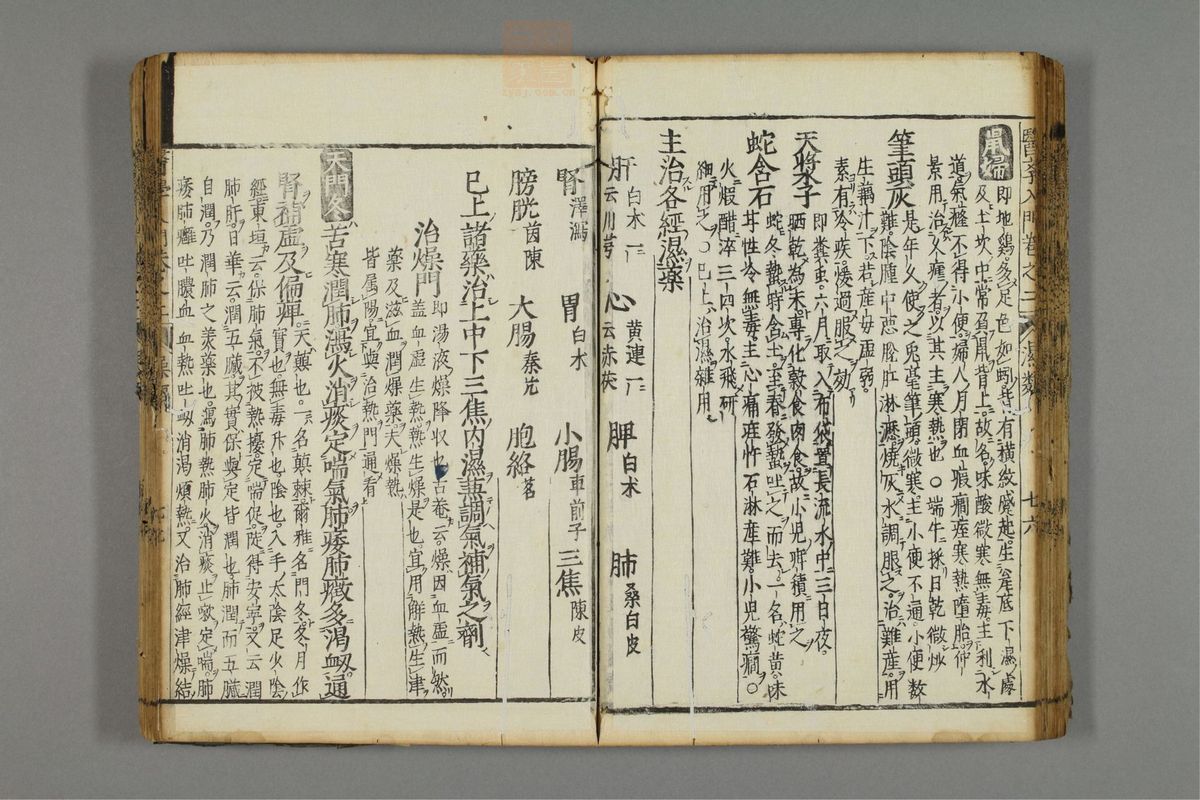 醫學入門卷之二 濕類 七六
鼠婦 即地鷄多足色如蚓背有横紋蹙起生瓮底下濕處
及土坎中常惹鼠背上故名味酸微寒無毒主利水
道氣癃不得小便婦人月閉血瘕癎痓寒熱墮胎仲
景用治久瘧者以其主寒熱也○端午採日乾微炒
筆頭灰 是年久使之兎毫筆頭微寒主小便不通小便數
難陰腫中惡脫肛淋瀝燒灰水調服之治難産用
生藕汁下若産母虛弱
素有冷疾煖過服之効
天將子 即糞虫六月取入布袋置長流水中三日夜
晒乾為末專化穀食肉食故小児疳積用之
蛇含石 蛇冬蟄時含土至春發蟄吐之而去一名蛇黄味
甘性冷無毒主心痛疰忤石淋産難小児驚癎○
火煆醋淬三四次水飛研
細用之○已上治濕雜用
主治各經濕藥
肝 白朮 川芎 心 黄連 赤茯 脾 白朮 肺 桑白皮
腎 澤瀉 胃 白朮 小腸 車前子 三焦 陳皮
膀胱 茵陳 大腸 秦艽 胞絡 茗
已上諸藥治上中下三焦内濕熏調氣補氣之劑
治燥門 即湯液燥降収也古卷云燥因血虛而然
蓋血虛生熱熱生燥是也宜用解熱生津
藥及滋血潤燥藥夫燥熱
皆属陽宜與治熱門通看
天門冬 苦寒潤肺瀉火消痰定喘氣肺痿肺癰多渴衂通
腎補虛及偏痺 天蘷也一名蘱棘爾雅名門冬冬月作
實也無毒升也陰也入手太陰足少陰
經東垣云保肺氣不被熱擾定喘促陡得安寧又云潤
肺肝日華云潤五臟其實保與定皆潤也肺潤而五臟
自潤乃潤肺之美藥也瀉肺熱肺火消痰止嗽定喘肺
痿肺癰吐膿血血熱吐衂消渴煩熱又治肺經津燥結